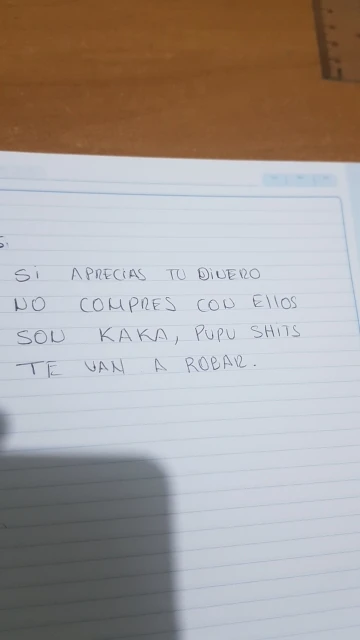 S:
Si APRECIAS TU DiNERO
NO COMPRES CON EllOS
SON KAKA, PUPU SHITS
TE VAN A ROBAR.